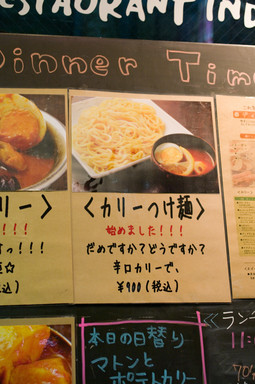 RESTAURANT IND
Dinner Time
リー〉
!!!
すっ!!!
☆
込)
〈カリーつけ麺〉
始めました!!!
だめですか?どうですか?
辛口カリーで、
¥900(税込)
本日の日替り
マトンと
ポテトカリー
ラン
11:0